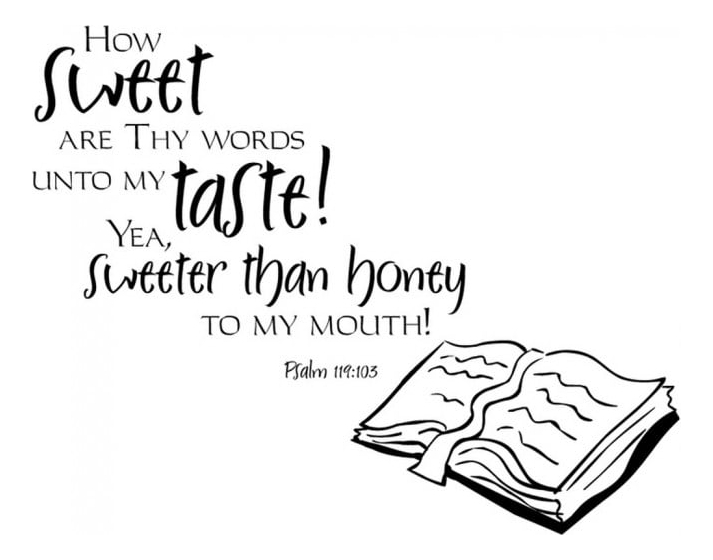 How
Sweet
are Thy words
unto my taste!
Yea,
sweeter than honey
to my mouth!
Psalm 119:103